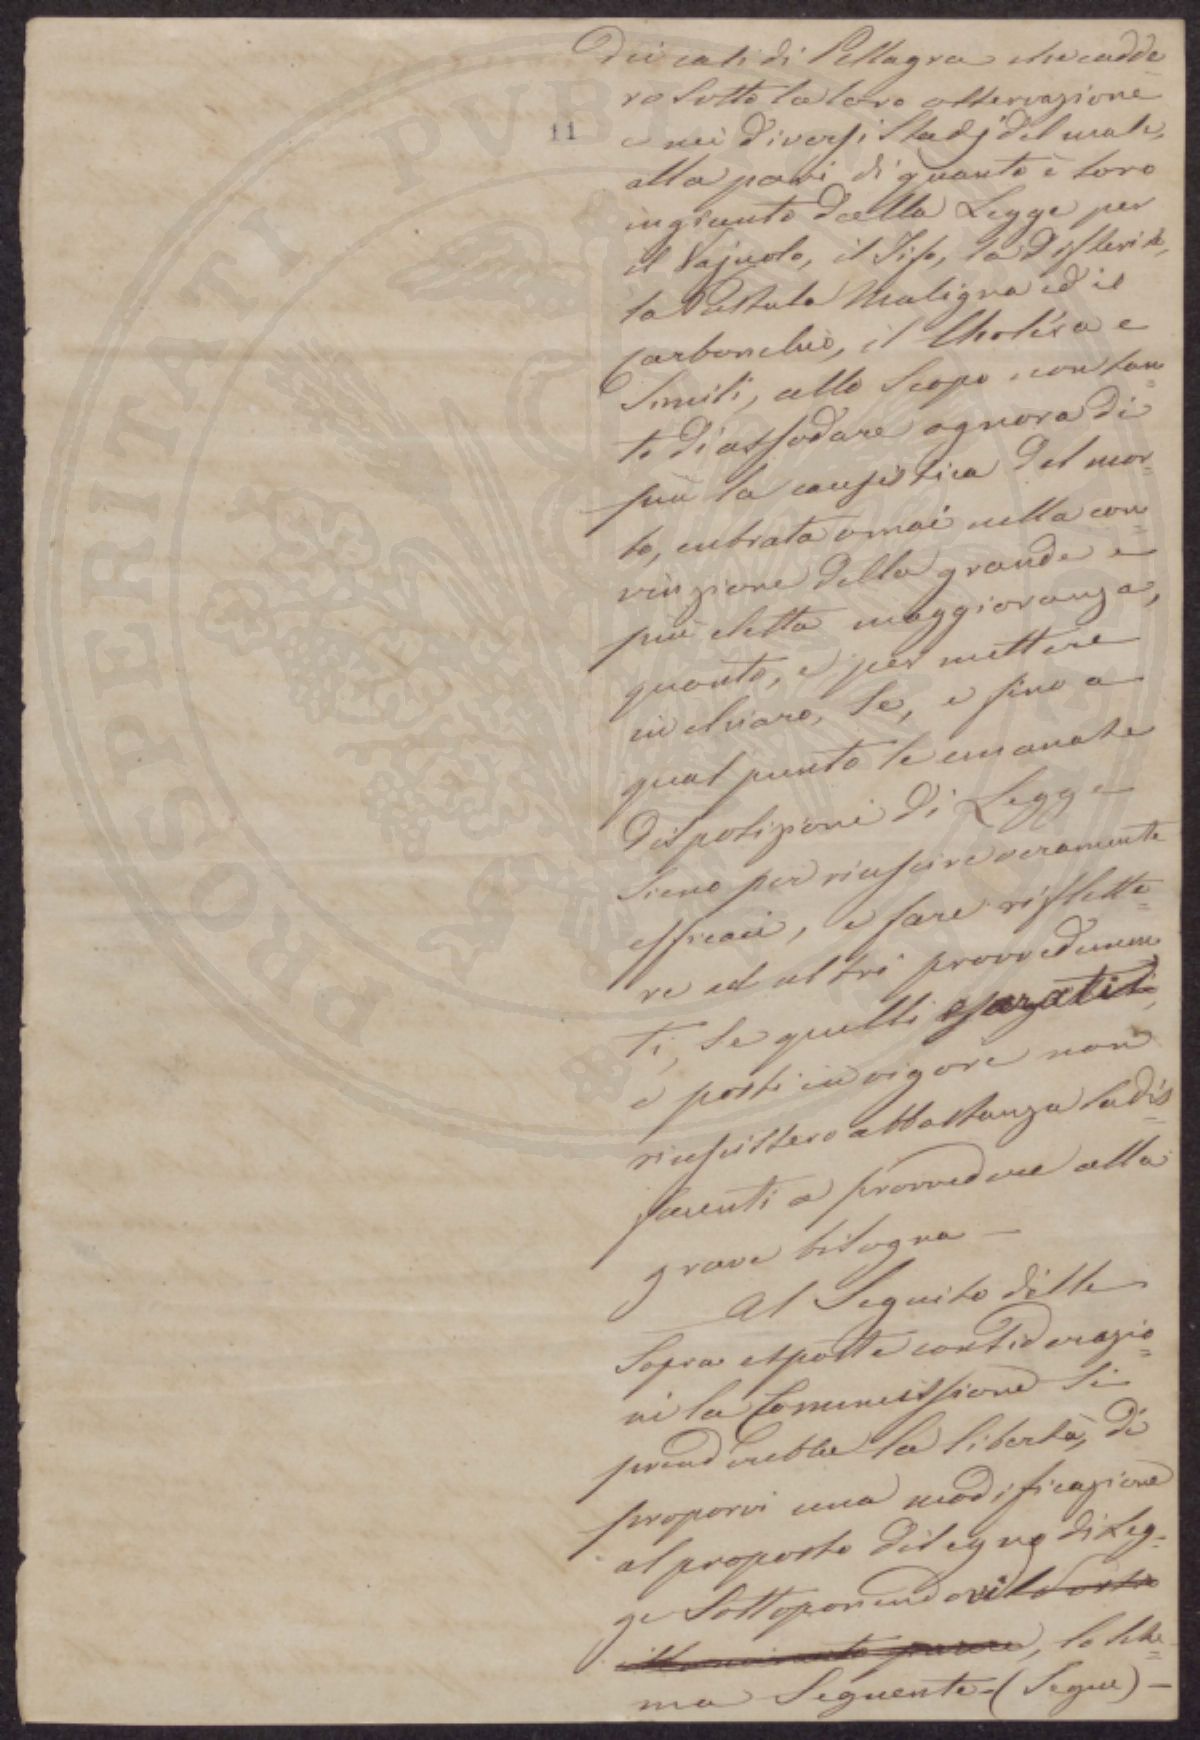 11
Dei casi di Pellagra che cadde
ro sotto la loro osservazione
e nei diversi Stadj del male,
alla pari di quanto è loro
ingiunto dalla Legge per
il Vajuolo, il Tifo, la Difterite,
la Pustula Maligna ed il
Carbonchio, il Cholera e
simili, allo scopo con tan=
to di assodare ognora di
più la causistica del mor=
bo, entrata omai nella con=
vinzione della grande e
più eletta maggioranza,
quanto, e per mettere
in chiaro, se, e fino a
qual punto le emanate
disposizioni di Legge
sieno per riuscire veramente
efficaci, e fare riflette=
re ad altri provvedimen
ti, se quelli
e posti in vigore non
riuscissero abbastanza sadis=
facenti a provvedere alla
grave bisogna —
Al Seguito delle
sopra esposte considerazio=
ni la Commissione si
prenderebbe la libertà, di
proporvi una modificazione
al proposto disegno di Leg=
ge sottoponendovi
lo sche=
ma seguente - (Segue) —
PROSPERITATI PVBLICAE